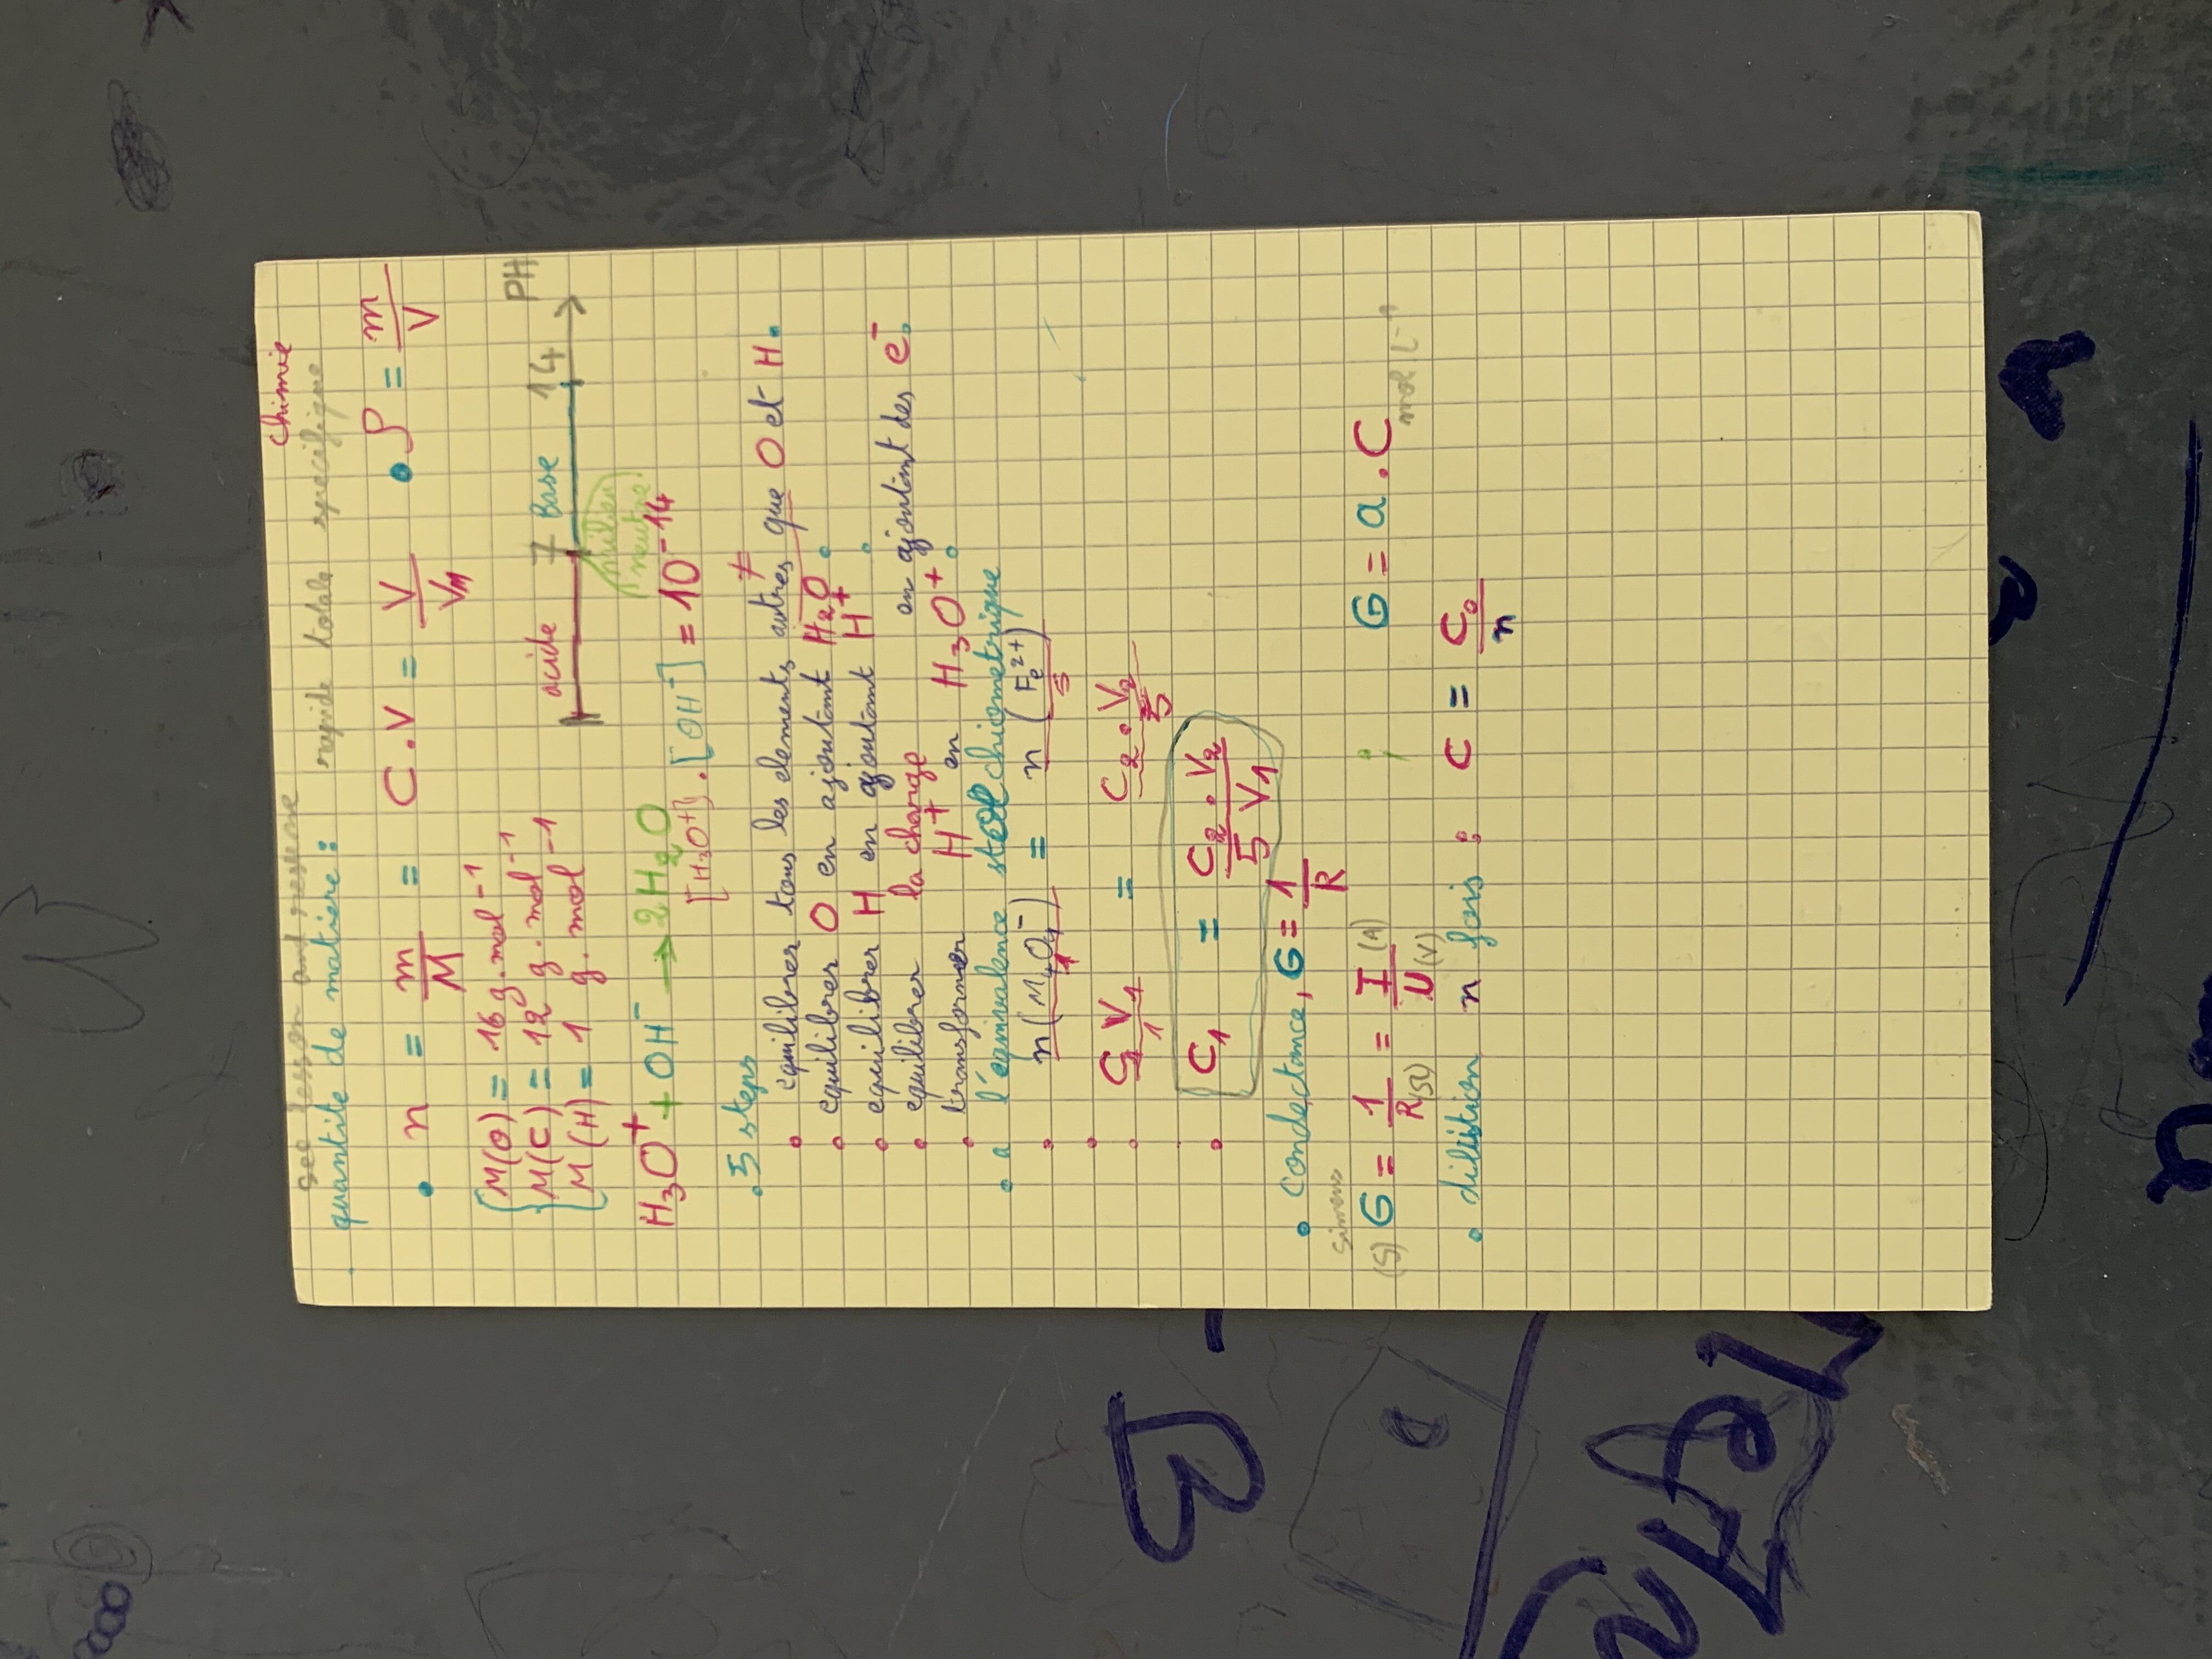 chimie
see lesson and
quantite de matiere : rapide totale specifique
• n = m/M = C.V = V/VM • ρ = m/V
M(O) = 16 g.mol⁻¹
M(C) = 12 g.mol⁻¹
M(H) = 1 g.mol⁻¹
acide 7 Base 14 PH
milieu
neutre
H₃O⁺ + OH⁻ → 2H₂O
[H₃O⁺].[OH⁻] = 10⁻¹⁴
• 5 steps
≠
• equilibrer tous les elements autres que O et H.
• equilibrer O en ajoutant H₂O •
• equilibrer H en ajoutant H⁺ •
• equilibrer la charge en ajoutant des e⁻.
• transformer H⁺ en H₃O⁺ •
• a l'équivalence stoechiometrique
• n(MₙO₄⁻)/1 = n(Fe²⁺)/5
• C₁V₁/1 = C₂.V₂/5
• C₁ = C₂.V₂/5 V₁
• condectance, G = 1/R
Simens
(S) G = 1/R(Ω) = I(A)/U(V) ; G = a.C mol.L⁻¹
• dilution n fois : C = C₀/n